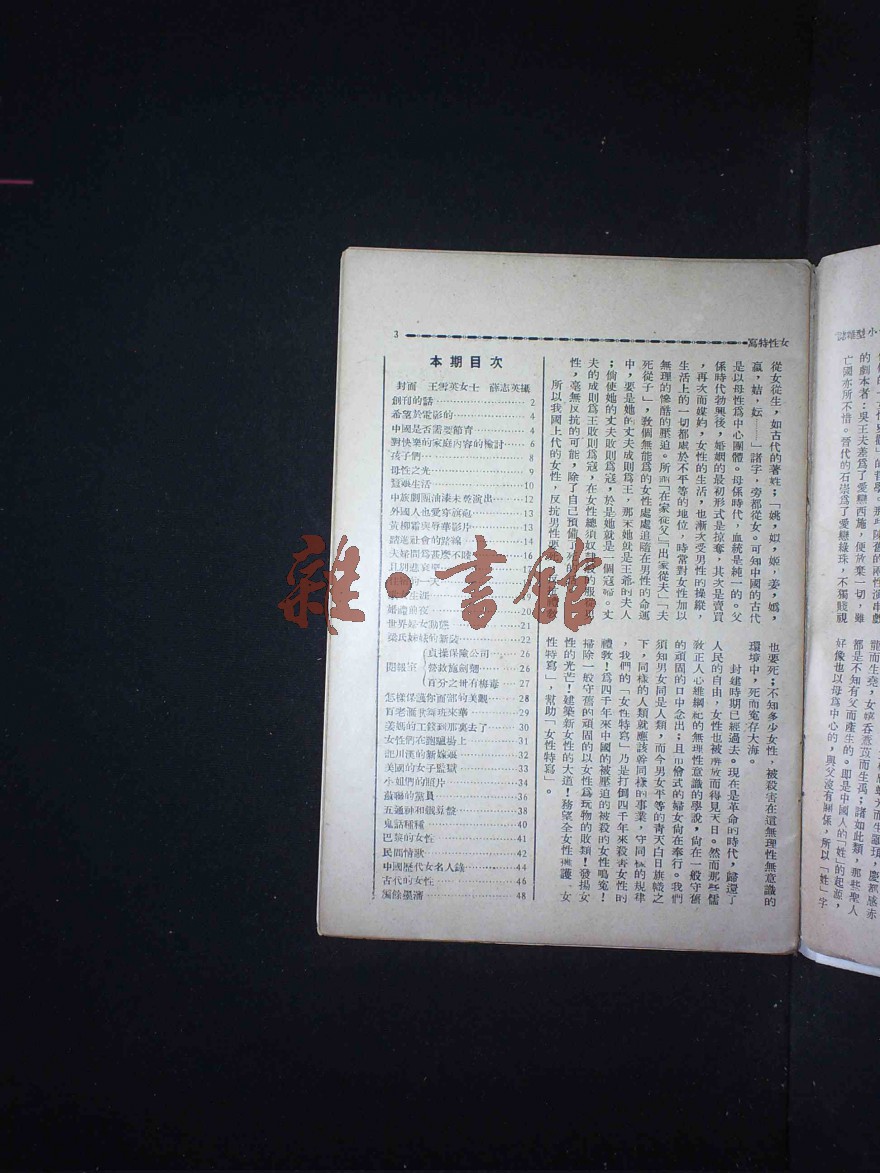 小型雜誌
女性特寫
3
從女從生，如古代的著姓；「姚，姒，姬，姜，嬀，
嬴，姞，妘——」諸字，旁都從女。可知中國的古代
是以母性爲中心團體。母係時代，血統是純一的。父
係時代勃興後，婚姻的最初形式是掠奪，其次是賣買
，再次而媒妁，女性的生活，也漸次受男性的操縱，
生活上的一切都處於不平等的地位，時常對女性加以
無理的慘酷的壓迫。所謂「在家從父」「出家從夫」「夫
死從子」，敎個無能爲的女性處處追隨在男性的命運
中，要是她的丈夫成則爲王，那末她就是王爺的夫人
；倘使她的丈夫敗則爲寇，於是她就是一個寇婦。丈
夫的成則爲王敗則爲寇，在女性總須奴隸
性，毫無反抗的可能，除了自己預備了
所以我國上代的女性，反抗男性要
也要死；不知多少女性，被殺害在這無理性無意識的
環境中，死而寃存大海。
封建時期已經過去。現在是革命的時代，歸還了
人民的自由，女性也被解放而得見天日。然而那些儒
敎正人心維綱紀的無理性意識的學說，尙在一般守舊
的頑固的口中念出；且市儈式的婦女尙在奉行。我們
須知男女同是人類，而今男女平等的靑天白日旗幟之
下，同樣的人類就應該幹同樣的事業，守同樣的規律
，我們的「女性特寫」乃是打倒四千年來殺害女性的
禮敎！爲四千年來中國的被壓迫的被殺的女性鳴寃！
掃除一般守舊的頑固的以女性爲玩物的敗類！發揚女
性的光芒！建築新女性的大道！務望全女性擁護「女
性特寫」，幫助「女性特寫」。
本期目次
封面 王雪英女士 薛志英攝
創刊的話 2
希望於電影的 4
中國是否需要節育 4
對快樂的家庭內容的檢討 6
孩子們 8
母性之光 9
賢雖生活 10
中旅劇團油漆未乾演出 12
外國人也愛穿旗袍 13
黃柳霜與辱華影片 13
踏進社會的路線 14
夫婦間爲甚麽不睦 16
17
一天
生涯
婚禮前夜 20
世界婦女動態 21
梁氏姊妹的新裝 22
閱報室
貞操保險公司 26
營救施劍翹 26
百分之卅有梅毒 27
怎樣保護你面部的美觀 28
百老匯世舞班來華 29
姜媽的工錢到那裏去了 30
女性們在跑驢場上 31
訨川漢的新嫁娘 32
美國的女子監獄 33
小姐們的照片 34
蘇聯的黨員 36
五通神和觀算盤 38
鬼話種種 40
巴黎的女性 41
民間情歌 42
中國歷代女名人錄 44
古代的女性 46
編餘墨瀋 48
的劇本者：吳王夫差爲了愛戀西施，便放棄一切，雖
亡國亦所不惜。晉代的石崇爲了愛戀綠珠，不獨賤視
都是不知有父而產生的。即是中國人的「姓」的起源，
好像也以母爲中心的，與父沒有關係，所以「姓」字
雜·書館